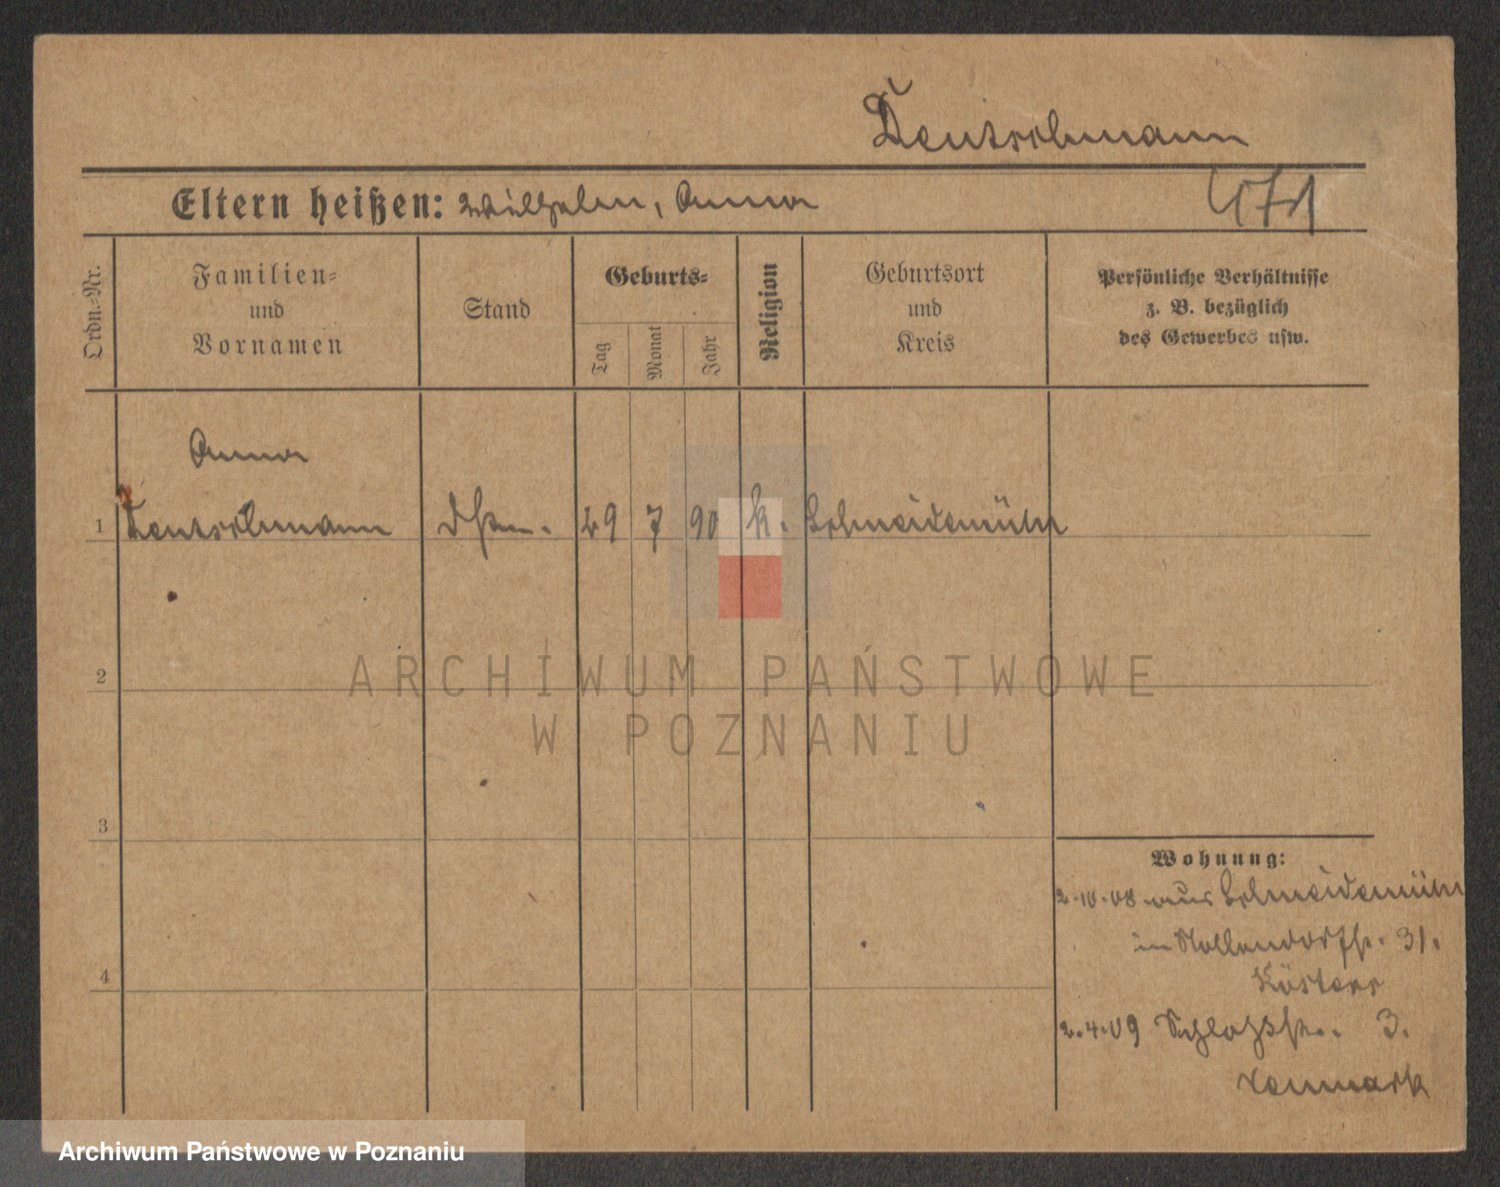 Deutschmann
Eltern heißen: Wilhelm, Anna
Ordn.-Nr.
Familien- und Vornamen
Stand
Geburts-
Tag
Monat
Jahr
Religion
Geburtsort und Kreis
Persönliche Verhältnisse z. B. bezüglich des Gewerbes usw.
Anna
1 Deutschmann 29 7 90 k. Schneidemühl
2
3
4
Wohnung:
2.10.08 aus Schneidemühl
in Nollendorfstr. 31.
Kösters
2.4.09 Schloßstr. 3.
Denmark
ARCHIWUM PAŃSTWOWE
W POZNANIU
Archiwum Państwowe w Poznaniu